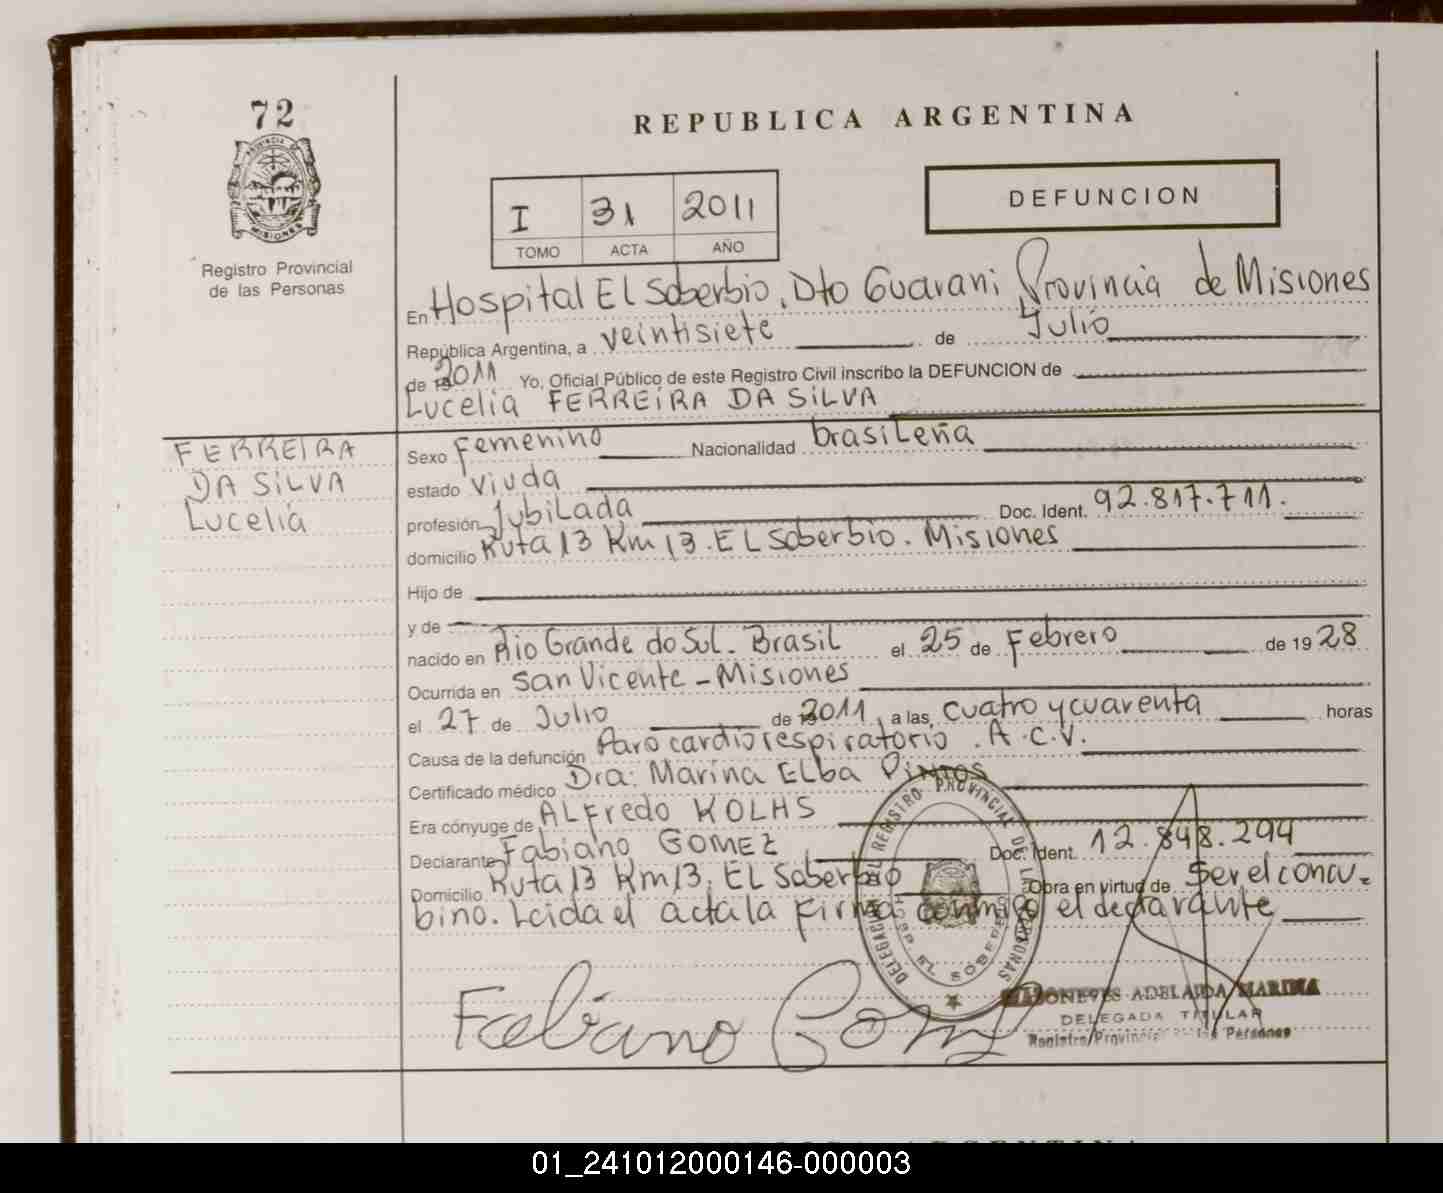 72
PROVINCIA DE
MISIONES
Registro Provincial
de las Personas
REPUBLICA ARGENTINA
I 31 2011
TOMO ACTA AÑO
DEFUNCION
En Hospital El Soberbio, Dto Guarani Provincia de Misiones
República Argentina, a veintisiete de Julio
de 2011 Yo, Oficial Público de este Registro Civil inscribo la DEFUNCION de
Lucelia FERREIRA DA SILVA
FERREIRA
DA SILVA
Lucelia
Sexo Femenino Nacionalidad brasileña
estado viuda
profesión Jubilada Doc. Ident. 92.817.711.
domicilio Ruta 13 Km 13. El Soberbio. Misiones
Hijo de
y de
nacido en Rio Grande do Sul. Brasil el 25 de Febrero de 1928
Ocurrida en San Vicente - Misiones
el 27 de Julio de 2011, a las, cuatro y cuarenta horas
Causa de la defunción Paro cardiorespiratorio. A.C.V.
Certificado médico Dra: Marina Elba Pintos
Era cónyuge de Alfredo KOLHS
Declarante Fabiano GOMEZ Doc. Ident. 12.848.294
Domicilio Ruta 13 Km 13. El Soberbio Obra en virtud de Ser el concu-
bino. Leida el acta la firma conmigo el declarante
REGISTRO PROVINCIAL DE LAS PERSONAS
HOSP. EL SOBERBIO
Fabiano Gomez
ADELAIDA MARINA
DELEGADA TITULAR
Registro Provincial de las Personas
REPUBLICA ARGENTINA
01_241012000146-000003